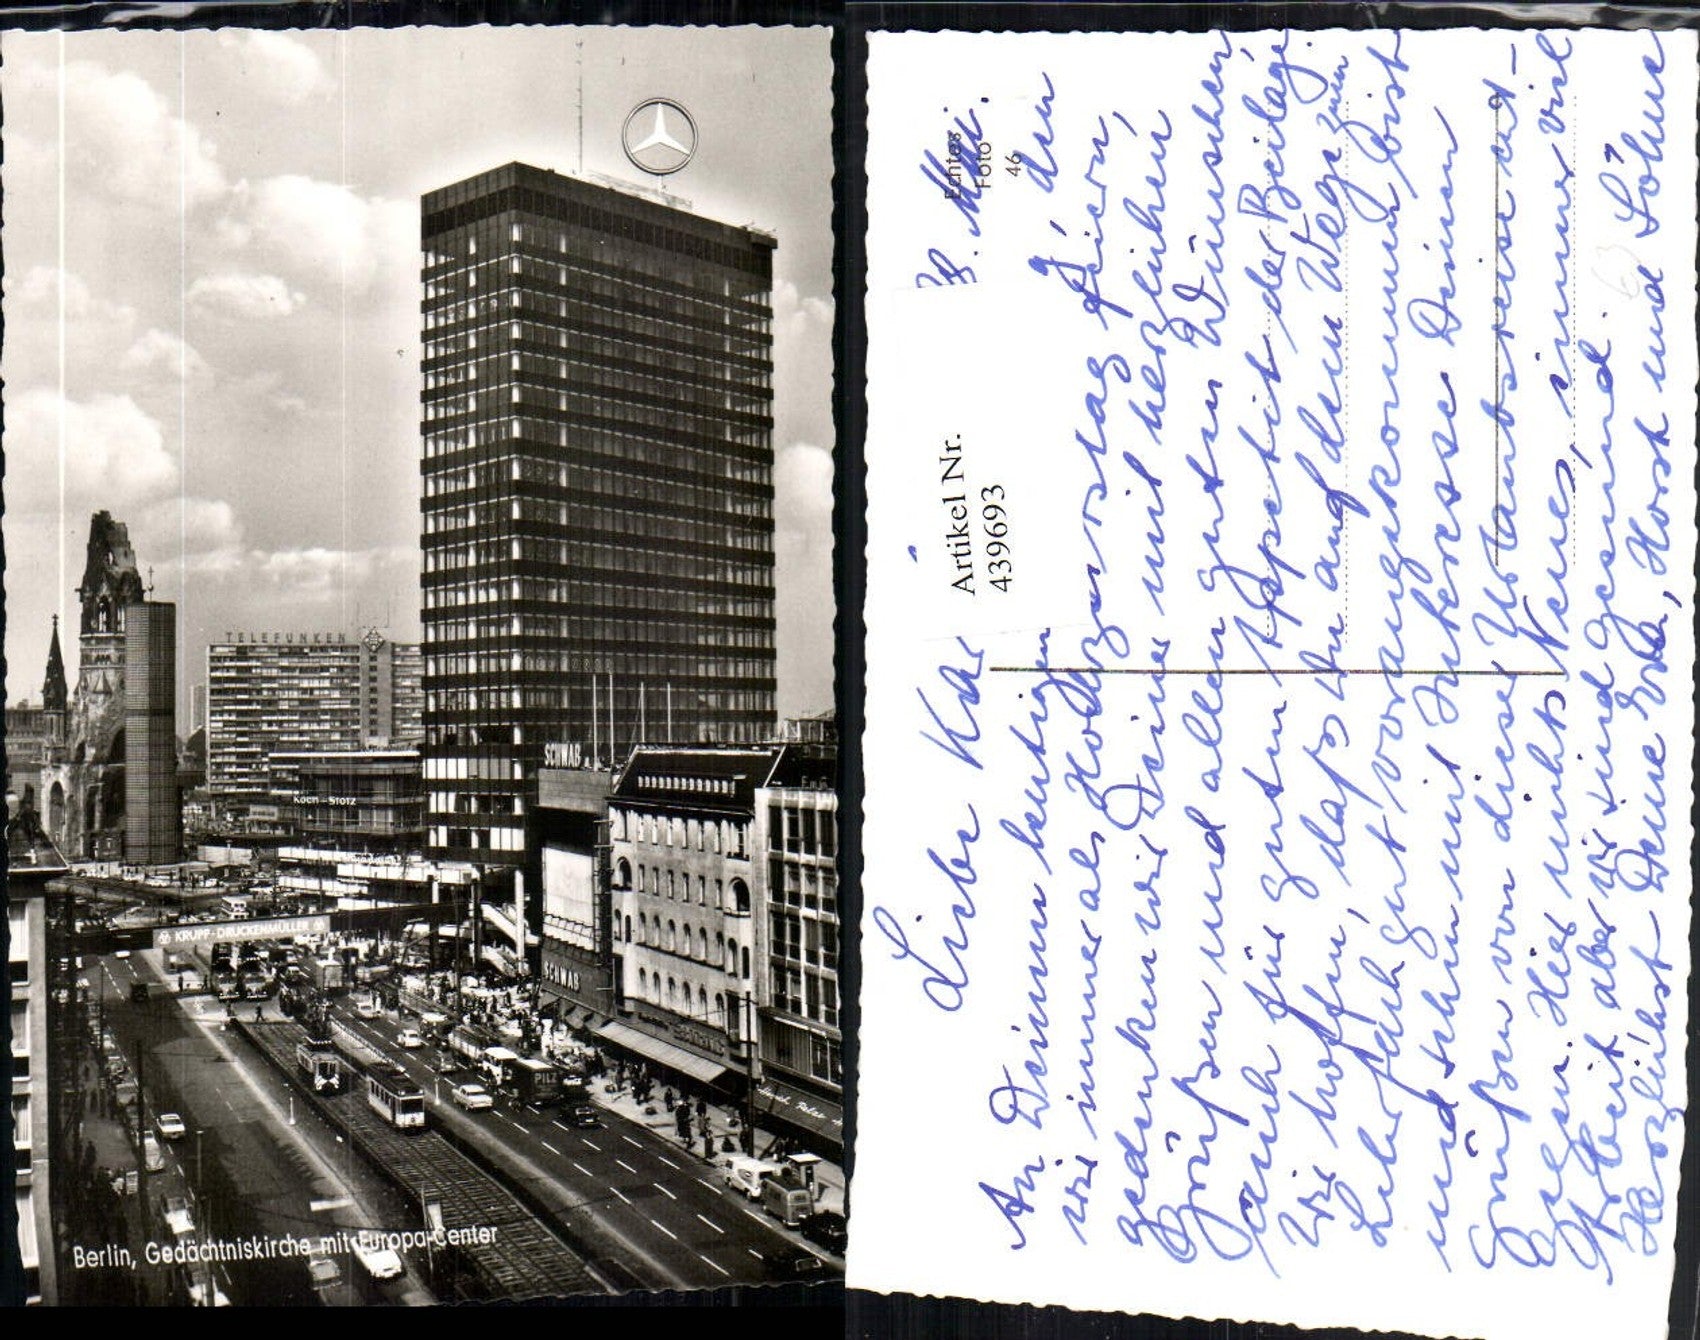 TELEFUNKEN
Koch - Stotz
SCHWAB
KRUPP-DRUCKENMÜLLER
SCHWAB
PILZ
Berlin, Gedächtniskirche mit Europa-Center
Echtes
Foto
46
Artikel Nr.
439693
Liebe
An Deinem heutigen, den
wir immer als feiern,
gedenken wir Deiner mit herzlichen
Grüßen und allen guten Wünschen
auch für guten Appetit der Beilage.
Wir hoffen, daß Du auf dem Wege zum
Lehrfach gut vorangekommen bist
und sehen mit Interesse Deinen
Grüßen von dieser Urlaubsreise ent-
gegen. Hier nichts Neues, immer viel
Arbeit aber wir sind gesund.
Herzlichst Deine Horst und Söhne